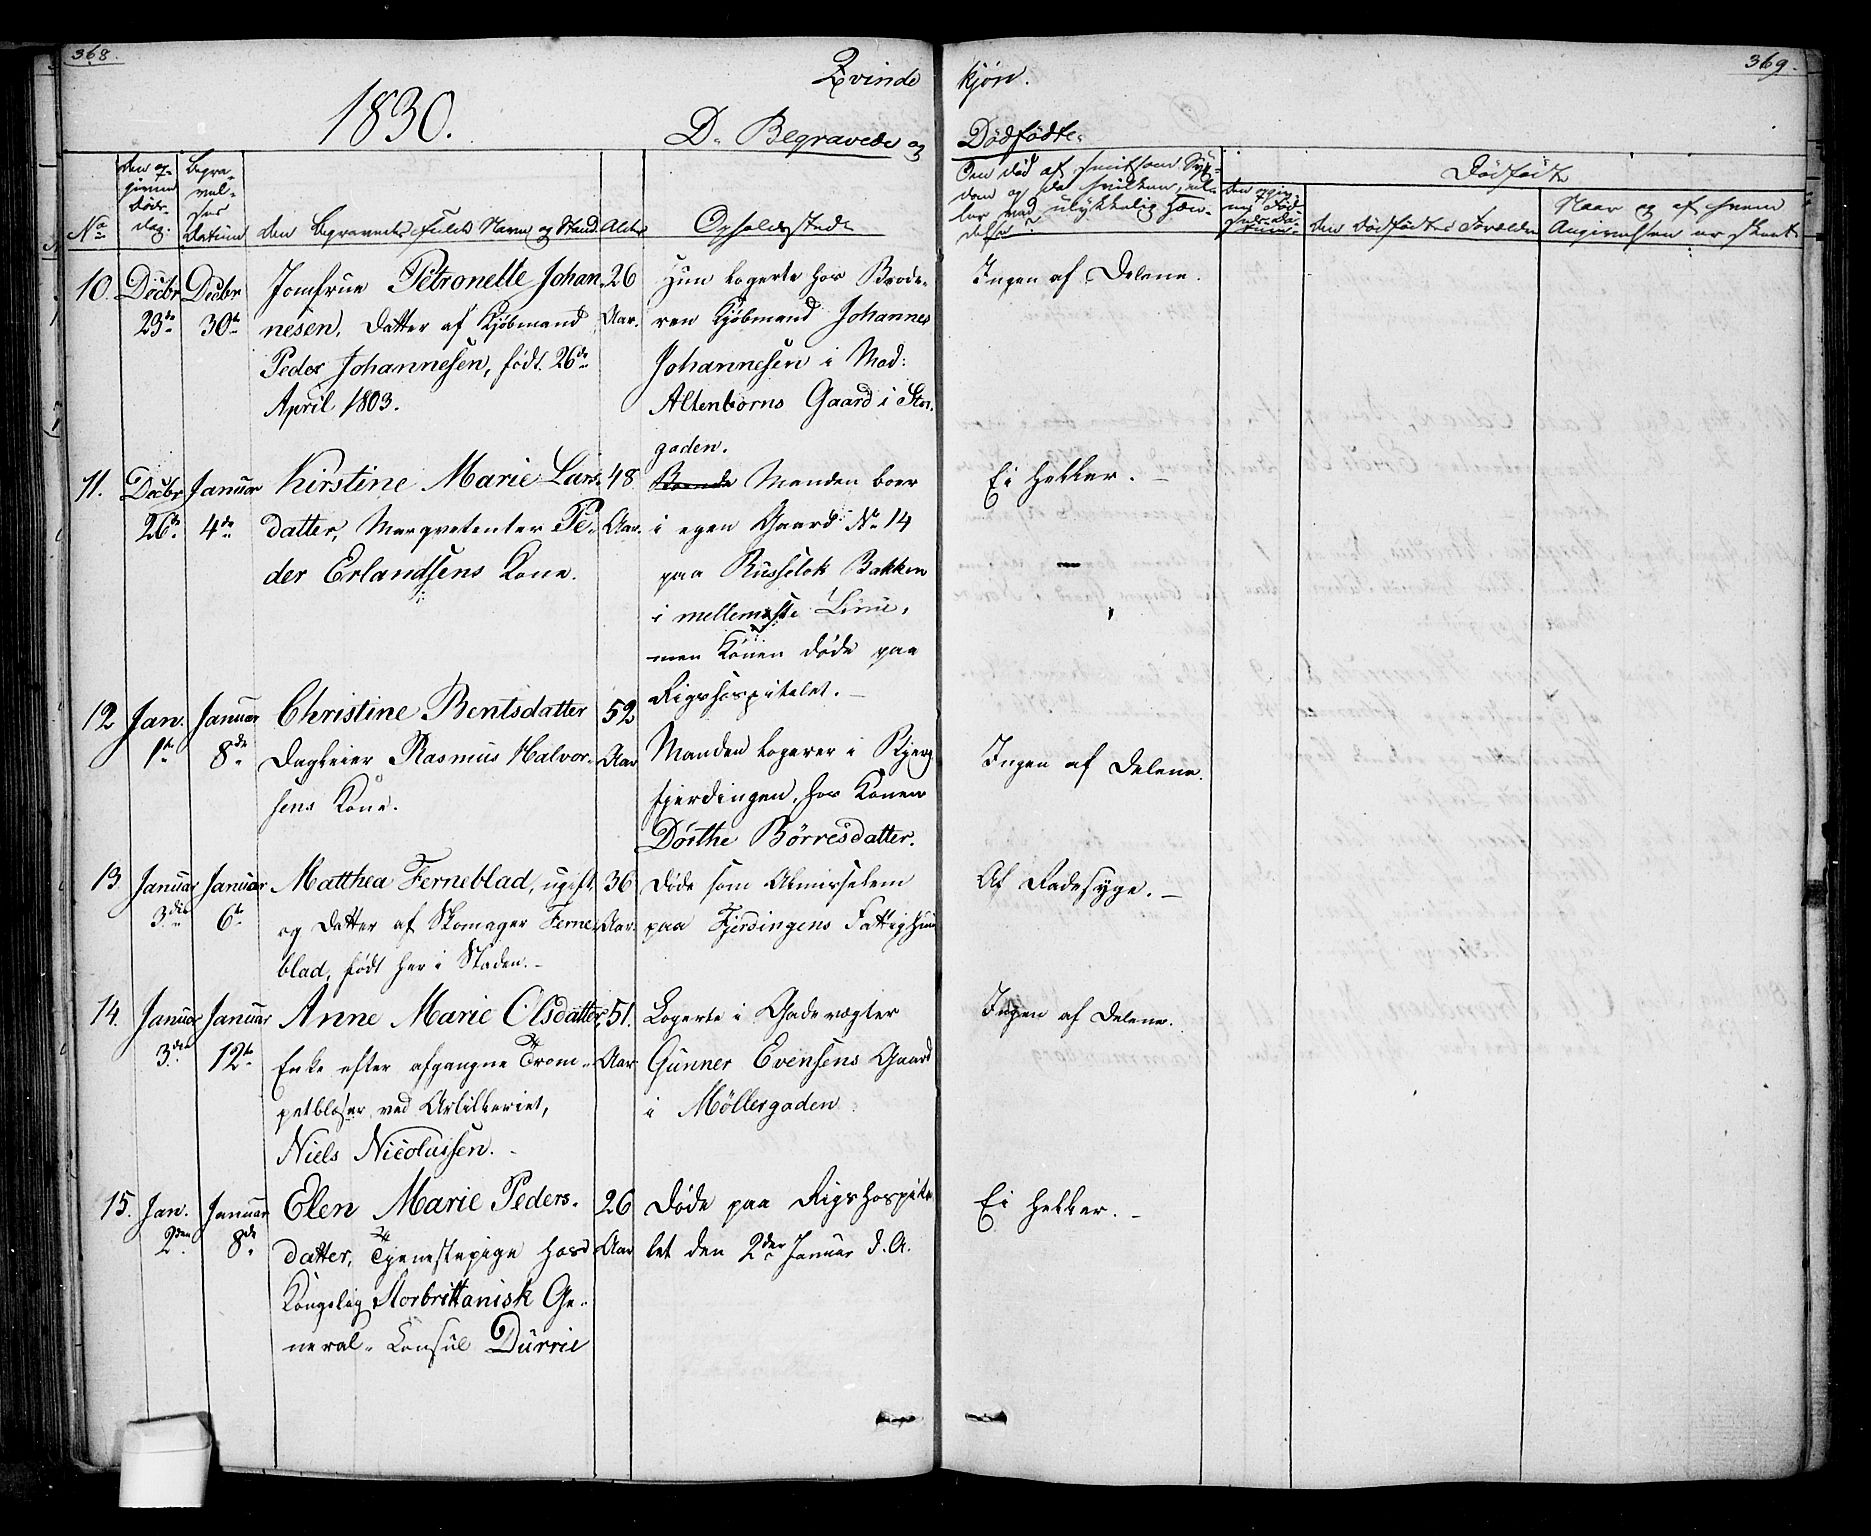 368.
369.
Qvinde kjøn.
1830.
D. Begravede og Dødfødte.
No
den op-
givne
Døds-
dag.
Begra-
vel-
ses
datum
den begravedes fulde Navn og Stand
Alder
Opholdssted
Om død af smitsom Syg-
dom og da hvilken, el-
ler ved ulykkelig Hæn-
delse.
Dødfødte
den dødfødtes Forældre
Naar og af hvem
Angivelsen er skeet
10. Decbr 23de Decbr 30te
Jomfrue Petronelle Johan-
nesen, Datter af Kjøbmand
Peder Johannesen, født 26de
April 1803.
26
Aar.
Hun logerte hos Brode-
ren Kjøbmand Johannes
Johannesen i Mad:
Altenborns Gaard i Stor-
gaden.
Ingen af Delene.
11. Decbr 26de Januar 4de
Kirstine Marie Lars-
datter, Marqvetenter Pe-
der Erlandsens Kone.
48
Aar.
Boende Manden boer
i egen Gaard No 14
paa Russeløk Bakken
i mellemste Linie,
men Konen døde paa
Rigshospitalet.
Ei heller.
12 Jan. 1te Januar 8de
Christine Bentsdatter
Dagleier Rasmus Halvor-
sens Kone.
52
Aar
Manden logerer i
fjerdingen, hos Konen
Dorthe Börresdatter.
Ingen af Delene.
13 Januar 3die Januar 6te
Matthea Ferneblad, ugift,
og Datter af Skomager Ferne-
blad, født her i Staden.
36
Aar.
Døde som Almisselem
paa Fjerdingens Fattighuus
Af Radesyge.
14. Januar 3die Januar 12te
Anne Marie Olsdatter,
Enke efter afgangne Trom-
petblæser ved Artilleriet,
Niels Nicolaisen.
51.
Aar
Logerte i Gadevægter
Gunner Evensens Gaard
i Möllergaden
Ingen af Delene.
15. Jan. 2den Januar 8de
Elen Marie Peders-
datter, Tjenestepige hos
Kongelig Storbrittanisk Ge-
neral-Consul Durrie
26
Aar
Døde paa Rigshospita-
let den 2den Januar d. A.
Ei heller.